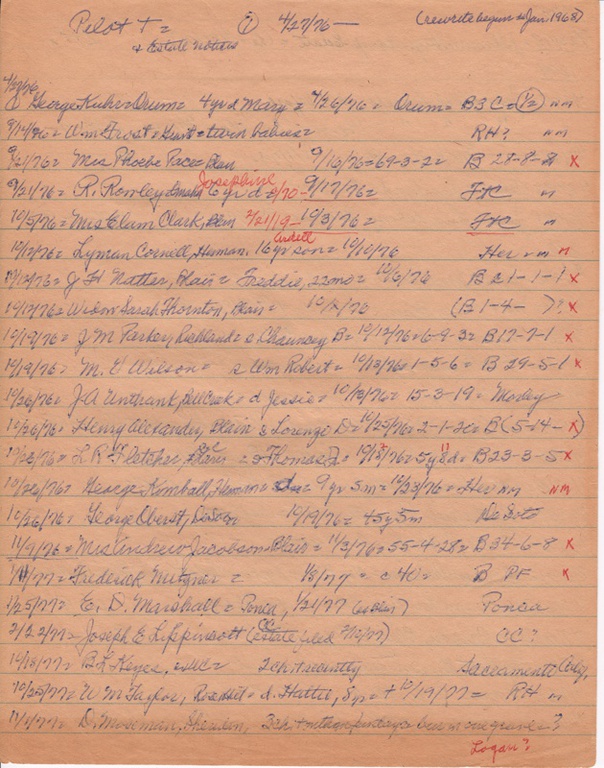 Pilot T = ① 4/27/76 — (rewrite begun Jan. 1968)
& Estate notices
4/27/76
① George Kuhr = Orum = 4 yr d Mary = 4/26/76 = Orum = B3C = 1/2 nm
9/14/76 = Wm Frost = = twin babies = RH? nm
9/21/76 = Mrs Phoebe Pace, Blair 9/16/76 = 69-3-2 = B 28-8-2 x
9/21/76 = R. Rowley Omaha Josephine 6 yr d 2/70 - 9/17/76 = FtC n
10/5/76 = Mrs Elam Clark, Blair 2/21/19 - 10/3/76 = FtC
10/12/76 = Lyman Cornell, Herman. 16 yr son = 10/10/76 Her nm n
10/12/76 = J H Natter, Blair = Freddie, 22 mo = 10/6/76 B 21-1-1 x
10/12/76 = Widow Sarah Thornton, Blair = 10/2/76 (B 1-4- )? x
10/19/76 = J M Parker, Richland = s Chauncey B = 10/12/76 = 6-9-3 = B 17-7-1 x
10/19/76 = M. E Wilson = s Wm Robert = 10/13/76 = 1-5-6 = B 29-5-1 x
10/26/76 = J. A Unthank, BellCreek = d Jessie = 10/13/76 = 15-3-19 = Morley
10/26/76 = Henry Alexander, Blair s Lorenzo D = 10/25/76 = 2-1-20 = B (5-14- x)
10/26/76 = L R Fletcher, Blair = s Thomas J = 10/13/76 = 5y 8d = B 23-3-5 x
10/26/76 = George Kimball, Herman = 9 yr 5m = 10/23/76 = Her nm nm
10/26/76 = George Oberst, DeSoto 10/19/76 = 45y 5m De Soto
11/9/76 = Mrs Andrew Jacobson = Blair = 11/3/76 = 55-4-28 = B 34-6-8 x
1/11/77 = Frederick Mitzner = 1/8/77 = c 40 = B PF x
1/25/77 = E. D. Marshall = Ponca, 1/21/77 Ponca
2/22/77 = Joseph E Lippincott (estate filed 2/10/77) CC?
10/18/77 = B L Keyes, 2 ch recently Sacramento
10/25/77 = W M Taylor, Rose Hill = d. Hattie, 8 yr = + 10/19/77 = RH n
11/1/77 = D. Moseman, Sheridan, 2 ch + one grave?
Logan?